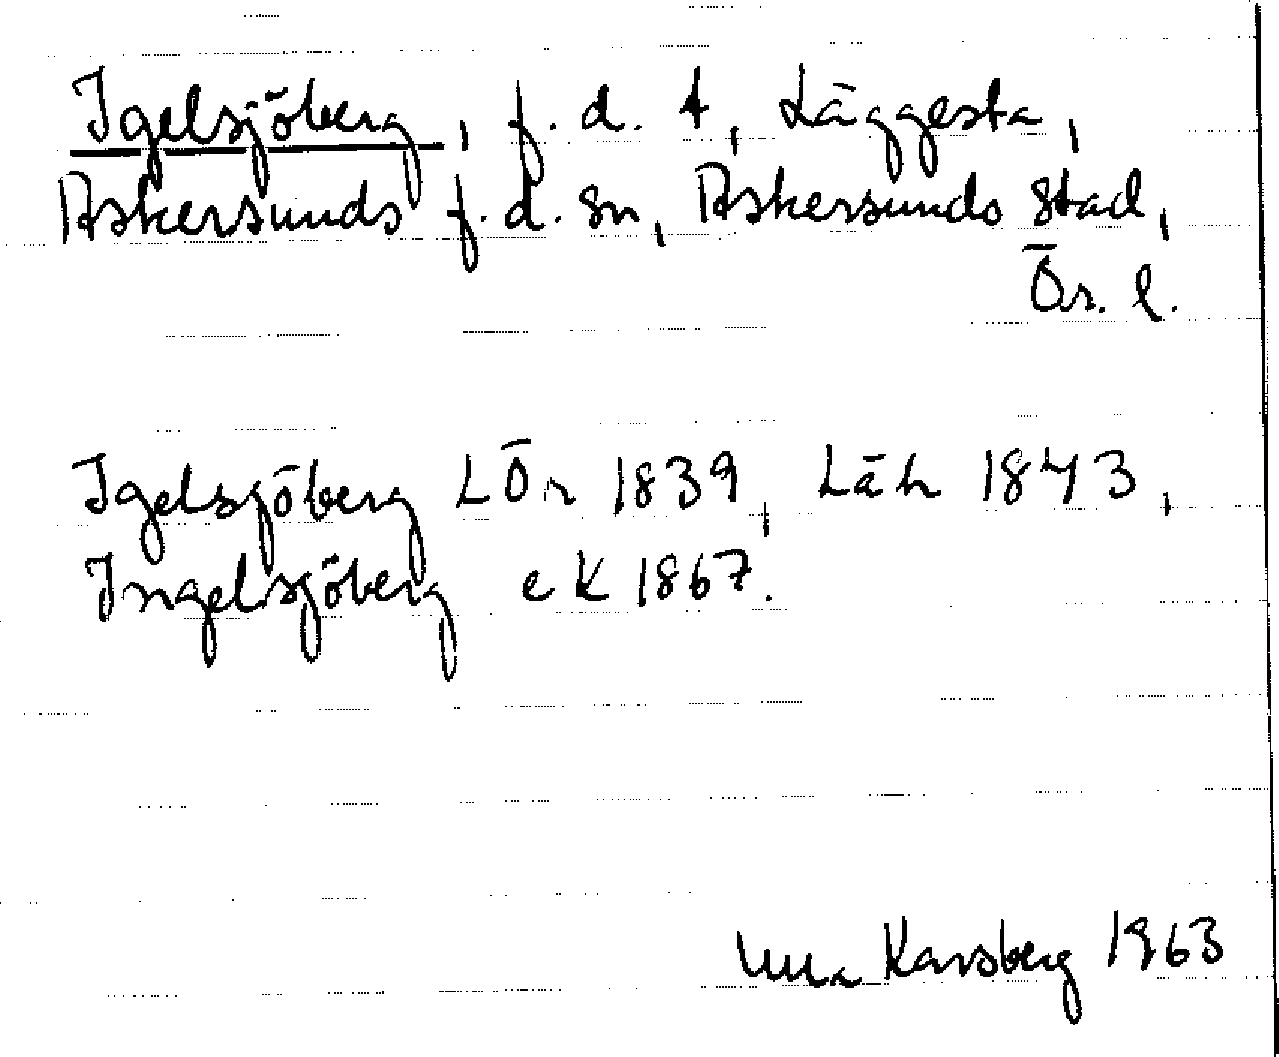 Igelsjöberg, f. d. t, Läggesta,
Askersunds f. d. sn, Askersunds stad,
Ör. l.
Igelsjöberg LÖr 1839, Läh 1843,
Ingelsjöberg eK 1867.
Karsberg 1963